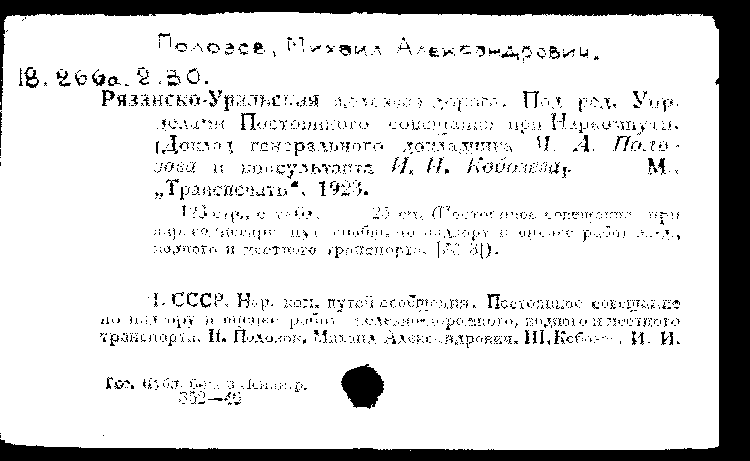 Полозов, Михаил Александрович.
18.266а.2.30.
Рязанско-Уральская железная дорога. Под ред. Упр.
делами Постоянного совещания при Наркомпути.
(Доклад генерального докладчика М. А. Поло-
зова и консультанта И. И. Кобозева). М.,
„Транспечать“, 1923.
стр., с табл. 25 см. (Постоянное совещание при
по надзору и оценке работ жел.,
водного и местного транспорта.
I. СССР. Нар. ком. путей сообщения. Постоянное совещание
по надзору и оценке работ железнодорожного, водного и местного
транспорта. II. Полозов, Михаил Александрович. III. Кобозев, И. И.
Гос. публ. б-ка в Ленингр.
352—49